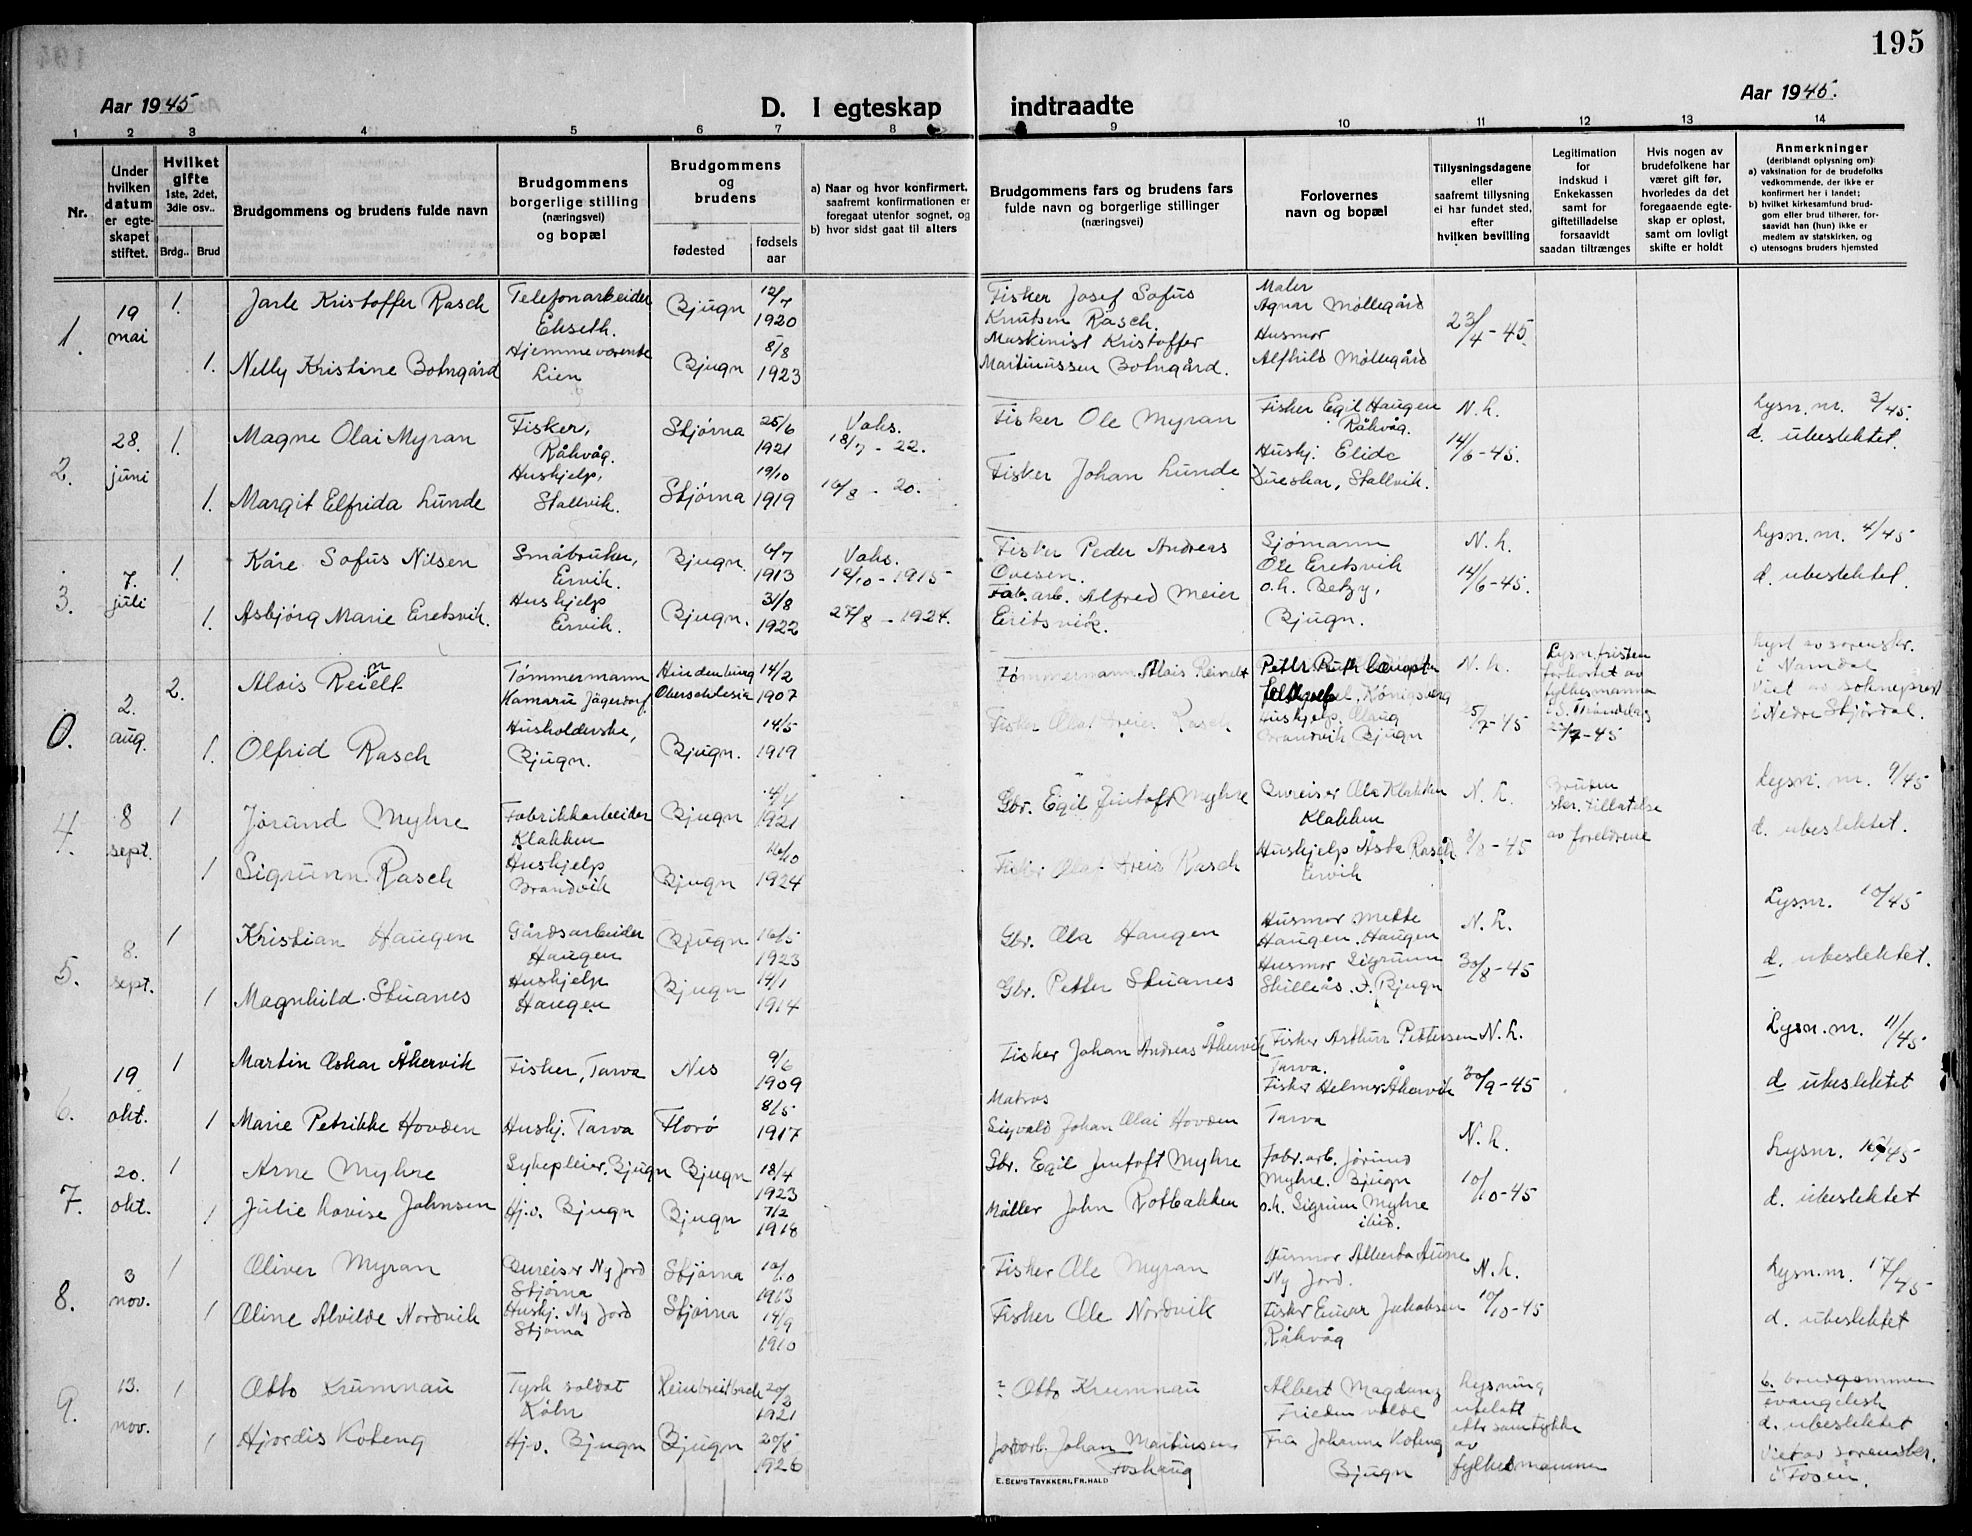 195
Aar 1945
D. I egteskap indtraadte
Aar 1945.
1 2 3 4 5 6 7 8 9 10 11 12 13 14
Nr.
Under
hvilken
datum
er egte-
skapet
stiftet.
Hvilket
gifte
1ste, 2det,
3die osv..
Brdg.. Brud
Brudgommens og brudens fulde navn
Brudgommens
borgerlige stilling
(næringsvei)
og bopæl
Brudgommens
og
brudens
fødested
fødsels
aar
a) Naar og hvor konfirmert,
saafremt konfirmationen er
foregaat utenfor sognet, og
b) hvor sidst gaat til alters
Brudgommens fars og brudens fars
fulde navn og borgerlige stillinger
(næringsvei)
Forlovernes
navn og bopæl
Tillysningsdagene
eller
saafremt tillysning
ei har fundet sted,
efter
hvilken bevilling
Legitimation
for
indskud i
Enkekassen
samt for
giftetilladelse
forsaavidt
saadan tiltrænges
Hvis nogen av
brudefolkene har
været gift før,
hvorledes da det
foregaaende egte-
skap er opløst,
samt om lovligt
skifte er holdt
Anmerkninger
(deriblandt oplysning om):
a) vaksination for de brudefolks
vedkommende, der ikke er
konfirmert her i landet;
b) hvilket kirkesamfund brud-
gom eller brud tilhører, for-
saavidt han (hun) ikke er
medlem av statskirken, og
c) utensogns bruders hjemsted
1.
19
mai
1.
Jarle Kristoffer Rasch
Telefonarbeider
Ekseth.
Bjugn
12/7
1920
Fisker Josef Sofus
Knutsen Rasch.
Maler
Agnar Møllegård
23/4-45.
1.
Nelly Kristine Botngård
Hjemmeværende
Lien
Bjugn
8/8
1923
Maskinist Kristoffer
Martinussen Botngård.
Husmor
Alfhild Møllegård
2.
28.
juni
1.
Magne Olai Myran
Fisker,
Råkvåg.
Stjørna
25/6
1921
Vaks.
18/7 - 22.
Fisker Ole Myran
Fisker Egil Haugen
Råkvåg.
N. k.
14/6-45.
Lysn. nr. 3/45.
d. ubeslektet.
1.
Margit Elfrida Lunde
Hushjelp,
Stallvik.
Stjørna
19/10
1919
16/8 - 20.
Fisker Johan Lunde
Hushj. Elide
Dueskar, Stallvik.
3.
7.
juli
1.
Kåre Sofus Nilsen
Småbruker,
Ervik.
Bjugn.
6/7
1913
Vaks.
12/10-1915
Fisker Peder Andreas
Ovesen.
Sjømann
Ole Eretsvik
N. k.
14/6-45.
Lysn. nr. 4/45
d. ubeslektet.
1.
Asbjørg Marie Eretsvik.
Hushjelp
Ervik.
Bjugn.
31/8
1922
27/8 - 1924.
Fab. arb. Alfred Meier
Eritsvik.
o.h. Betzy,
Bjugn.
0.
2.
aug.
2.
Alois Reinelt
Tømmermann
Kamaru Jägerdorf
Hindenburg
Oberschlesia
14/2
1907
Tømmermann Alois Reinelt
N. k.
Lysn. fristen
forkortet av
fylkesmannen
i S. Trøndelag
Lyst av sorenskr.
i Namdal
Viet av sokneprest
i Nedre Stjørdal.
1.
Olfrid Rasch
Husholderske,
Bjugn.
Bjugn.
14/5
1919
Fisker Olaf Dreier Rasch
Hushjelp. Olaug
Brandvik Bjugn
25/7-45
4.
8
sept.
1
Jørund Myhre
Fabrikkarbeider
Klakken
Bjugn
4/4
1921
Gbr. Egil Jentoft Myhre
Bureiser Ola Klakken
Klakken
N. k.
Bruden
skr. tillatelse
av foreldrene
Lysn. nr. 9/45
d. ubeslektet.
1
Sigrunn Rasch
Hushjelp
Brandvik
Bjugn
16/10
1924
Fisker Olaf Dreier Rasch
Hushjelp Åsta Rasch
Ervik
8/8-45
5.
8.
sept.
1
Kristian Haugen
Gårdsarbeider
Haugen
Bjugn
16/5
1923
Gbr. Ola Haugen
Husmor Mette
Haugen. Haugen
N. k.
Lysnr. 10/45
1
Magnhild Stuanes
Hushjelp
Haugen
Bjugn
14/1
1914
Gbr. Petter Stuanes
Husmor Sigrunn
Skilleås. Bjugn
30/8-45
d. ubeslektet.
6.
19
okt.
1
Martin Oskar Åkervik
Fisker, Tarva
Nes
9/6
1909
Fisker Johan Andreas Åkervik
Fisker Arthur Pettersen
Tarva.
N. k.
Lysn. nr. 11/45
1
Marie Petrikke Hovden
Hushj. Tarva
Florø
8/5
1917
Matros
Sigvald Johan Olai Hovden
Fisker Helmer Åkervik
Tarva
30/9-45
d ubeslektet
7.
20.
okt.
1
Arne Myhre
Sykepleier. Bjugn
Bjugn
18/4
1923
Gbr. Egil Jentoft Myhre
Fabr. arb. Jørund
Myhre. Bjugn
N. k.
10/10-45
Lysnr. 16/45
1
Julie Lovise Johnsen
Hj.v. Bjugn
Bjugn
7/2
1918
Møller John Rotbakken
o.h. Sigrunn Myhre
ibid.
d. ubeslektet
8.
3
nov.
1
Oliver Myran
Bureiser Ny Jord
Stjørna
Stjørna
10/10
1913
Fisker Ole Myran
Husmor Alberta Aune
Ny Jord.
N. k.
Lysn. nr. 17/45
1
Oline Alvilde Nordvik
Hushj. Ny Jord
Stjørna
Stjørna
14/9
1910
Fisker Ole Nordvik
Fisker Einar Jakobsen
Råkvåg
10/10-45
d. ubeslektet
9.
13.
nov.
1
Otto Krumnau
Tysk soldat
Köln
Reinbreitbach
20/2
1921
? Otto Krumnau
Albert Magdanz
Lysning
utelatt
etter samtykke
av
fylkesmannen
b. brudgommen
evangelisk
d. ubeslektet
1
Hjørdis Koteng
Hj.v. Bjugn
Bjugn
20/8
1926
Jordarb. Johan Martinsen
Foshaug
Fru Johanna Koteng
Bjugn
Viet av sorenskr.
i Fosen.
E. SEM'S TRYKKERI, FR.HALD